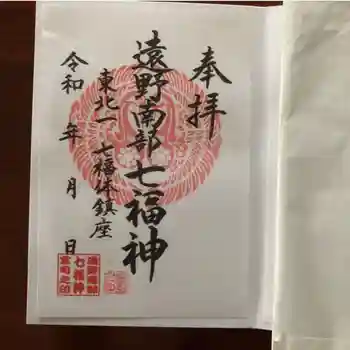 奉拝
遠野南部七福神
東北一 七福神鎮座
令和 年 月 日
七福神